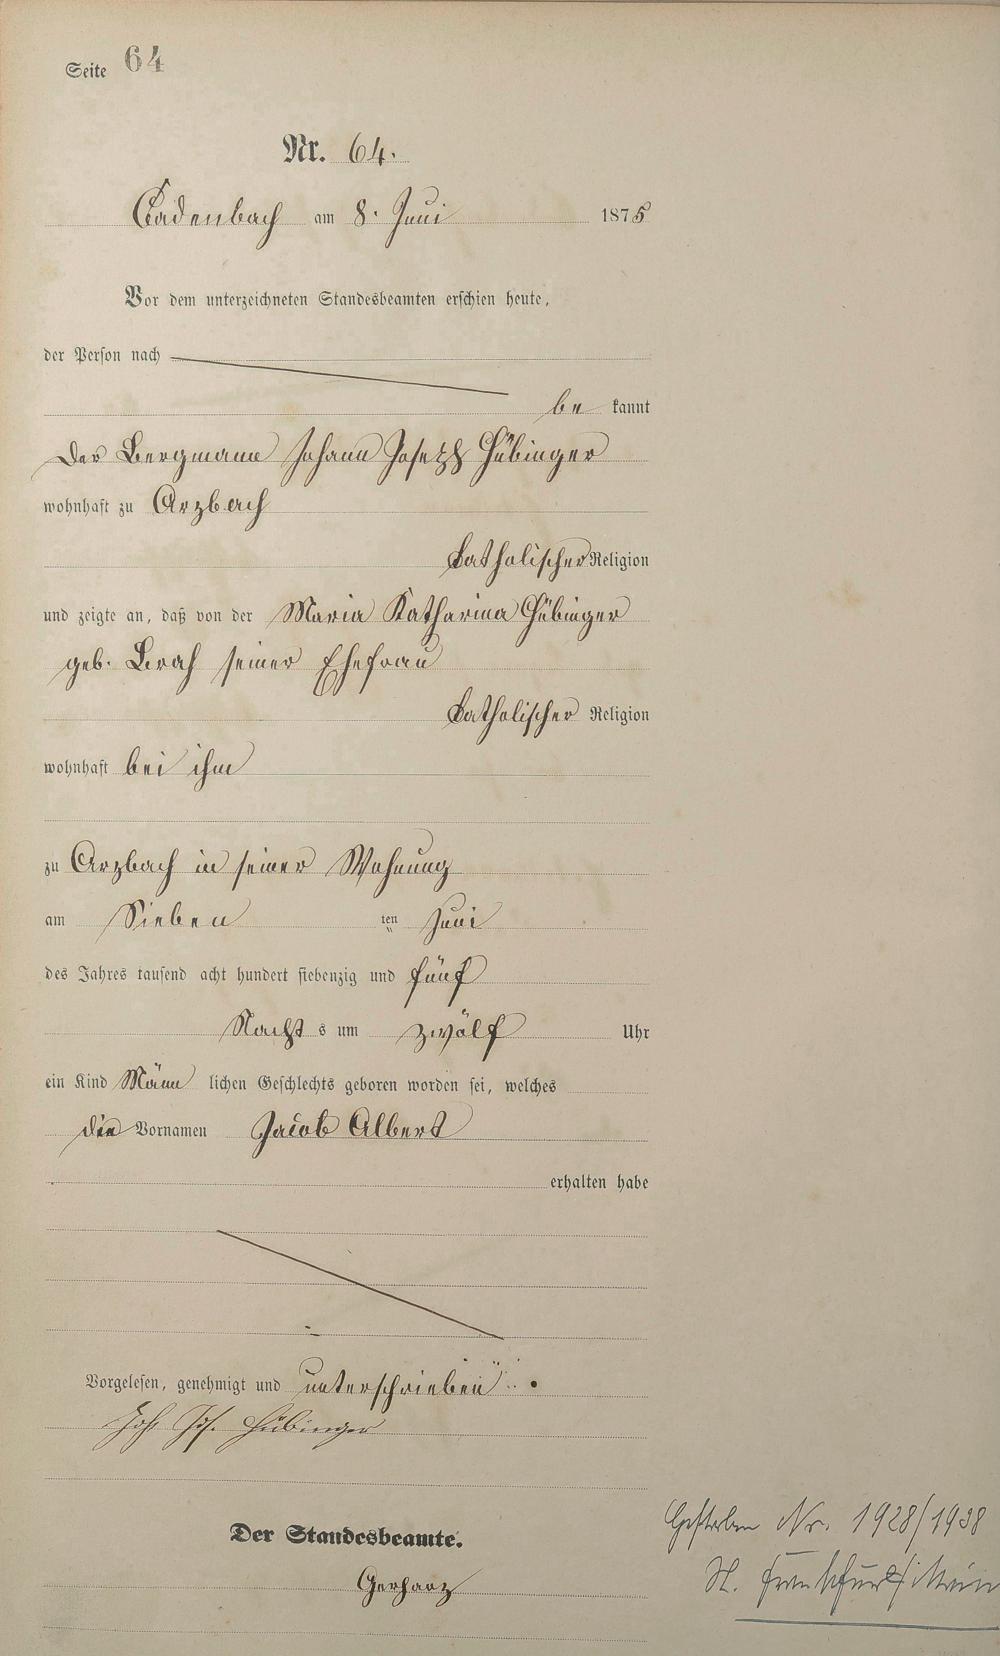 Seite 64
Nr. 64.
Cadenbach am 8. Juni 1875
Vor dem unterzeichneten Standesbeamten erschien heute,
der Person nach
be kannt
Der Bergmann Johann Joseph Hübinger
wohnhaft zu Arzbach
katholischer Religion
und zeigte an, daß von der Maria Katharina Hübinger
geb. seiner Ehefrau
katholischer Religion
wohnhaft bei ihm
zu Arzbach in seiner Wohnung
am Sieben ten Juni
des Jahres tausend acht hundert siebenzig und fünf
Nacht s um zwölf Uhr
ein Kind Männ lichen Geschlechts geboren worden sei, welches
die Vornamen Jacob Albert
erhalten habe
Vorgelesen, genehmigt und unterschrieben
Joh Jos. Hübinger
Der Standesbeamte.
Gerharz
Gestorben Nr. 1928/1938
St. Frankfurt/Main